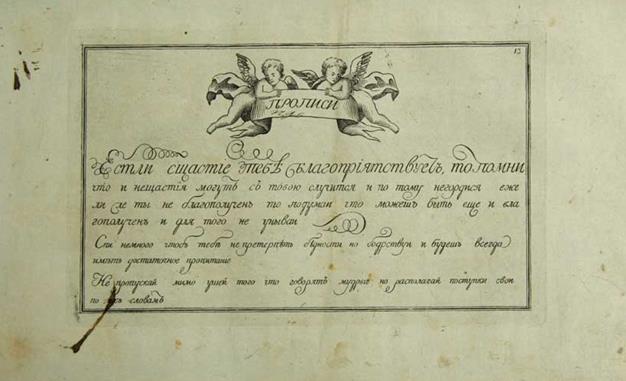 13
ПРОПИСИ
Естли сщастие тебѣ благоприятствуетъ, то помни
что и нещастия могутъ со тобою случится и по тому негордися еже
ли же ты не благополученъ то подумай что можешь быть еще и бла
гополученъ и для того не унывай
Спи немного чтобъ тебѣ не претерпѣть бѣдности но бодрствуй и будешь всегда
имѣть достаточное пропитание
Не пропускай мимо ушей того что говорятъ мудрые но располагай поступки свои
по ихъ словамъ